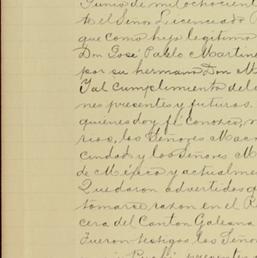 Junio de mil ochocient
te el Señor Licenciado P
que como hijo legitimo
Don José Pablo Martine
por su hermano Don M
y al cumplimiento del
nes presentes y futuros.
quienes doy fé conozco,
rios, los Señores Mac
cindad y los Señores M
de México y actualme
Quedaron advertidos q
tomarse razon en el R
cera del Canton Galeana
Fueron testigos los Seño